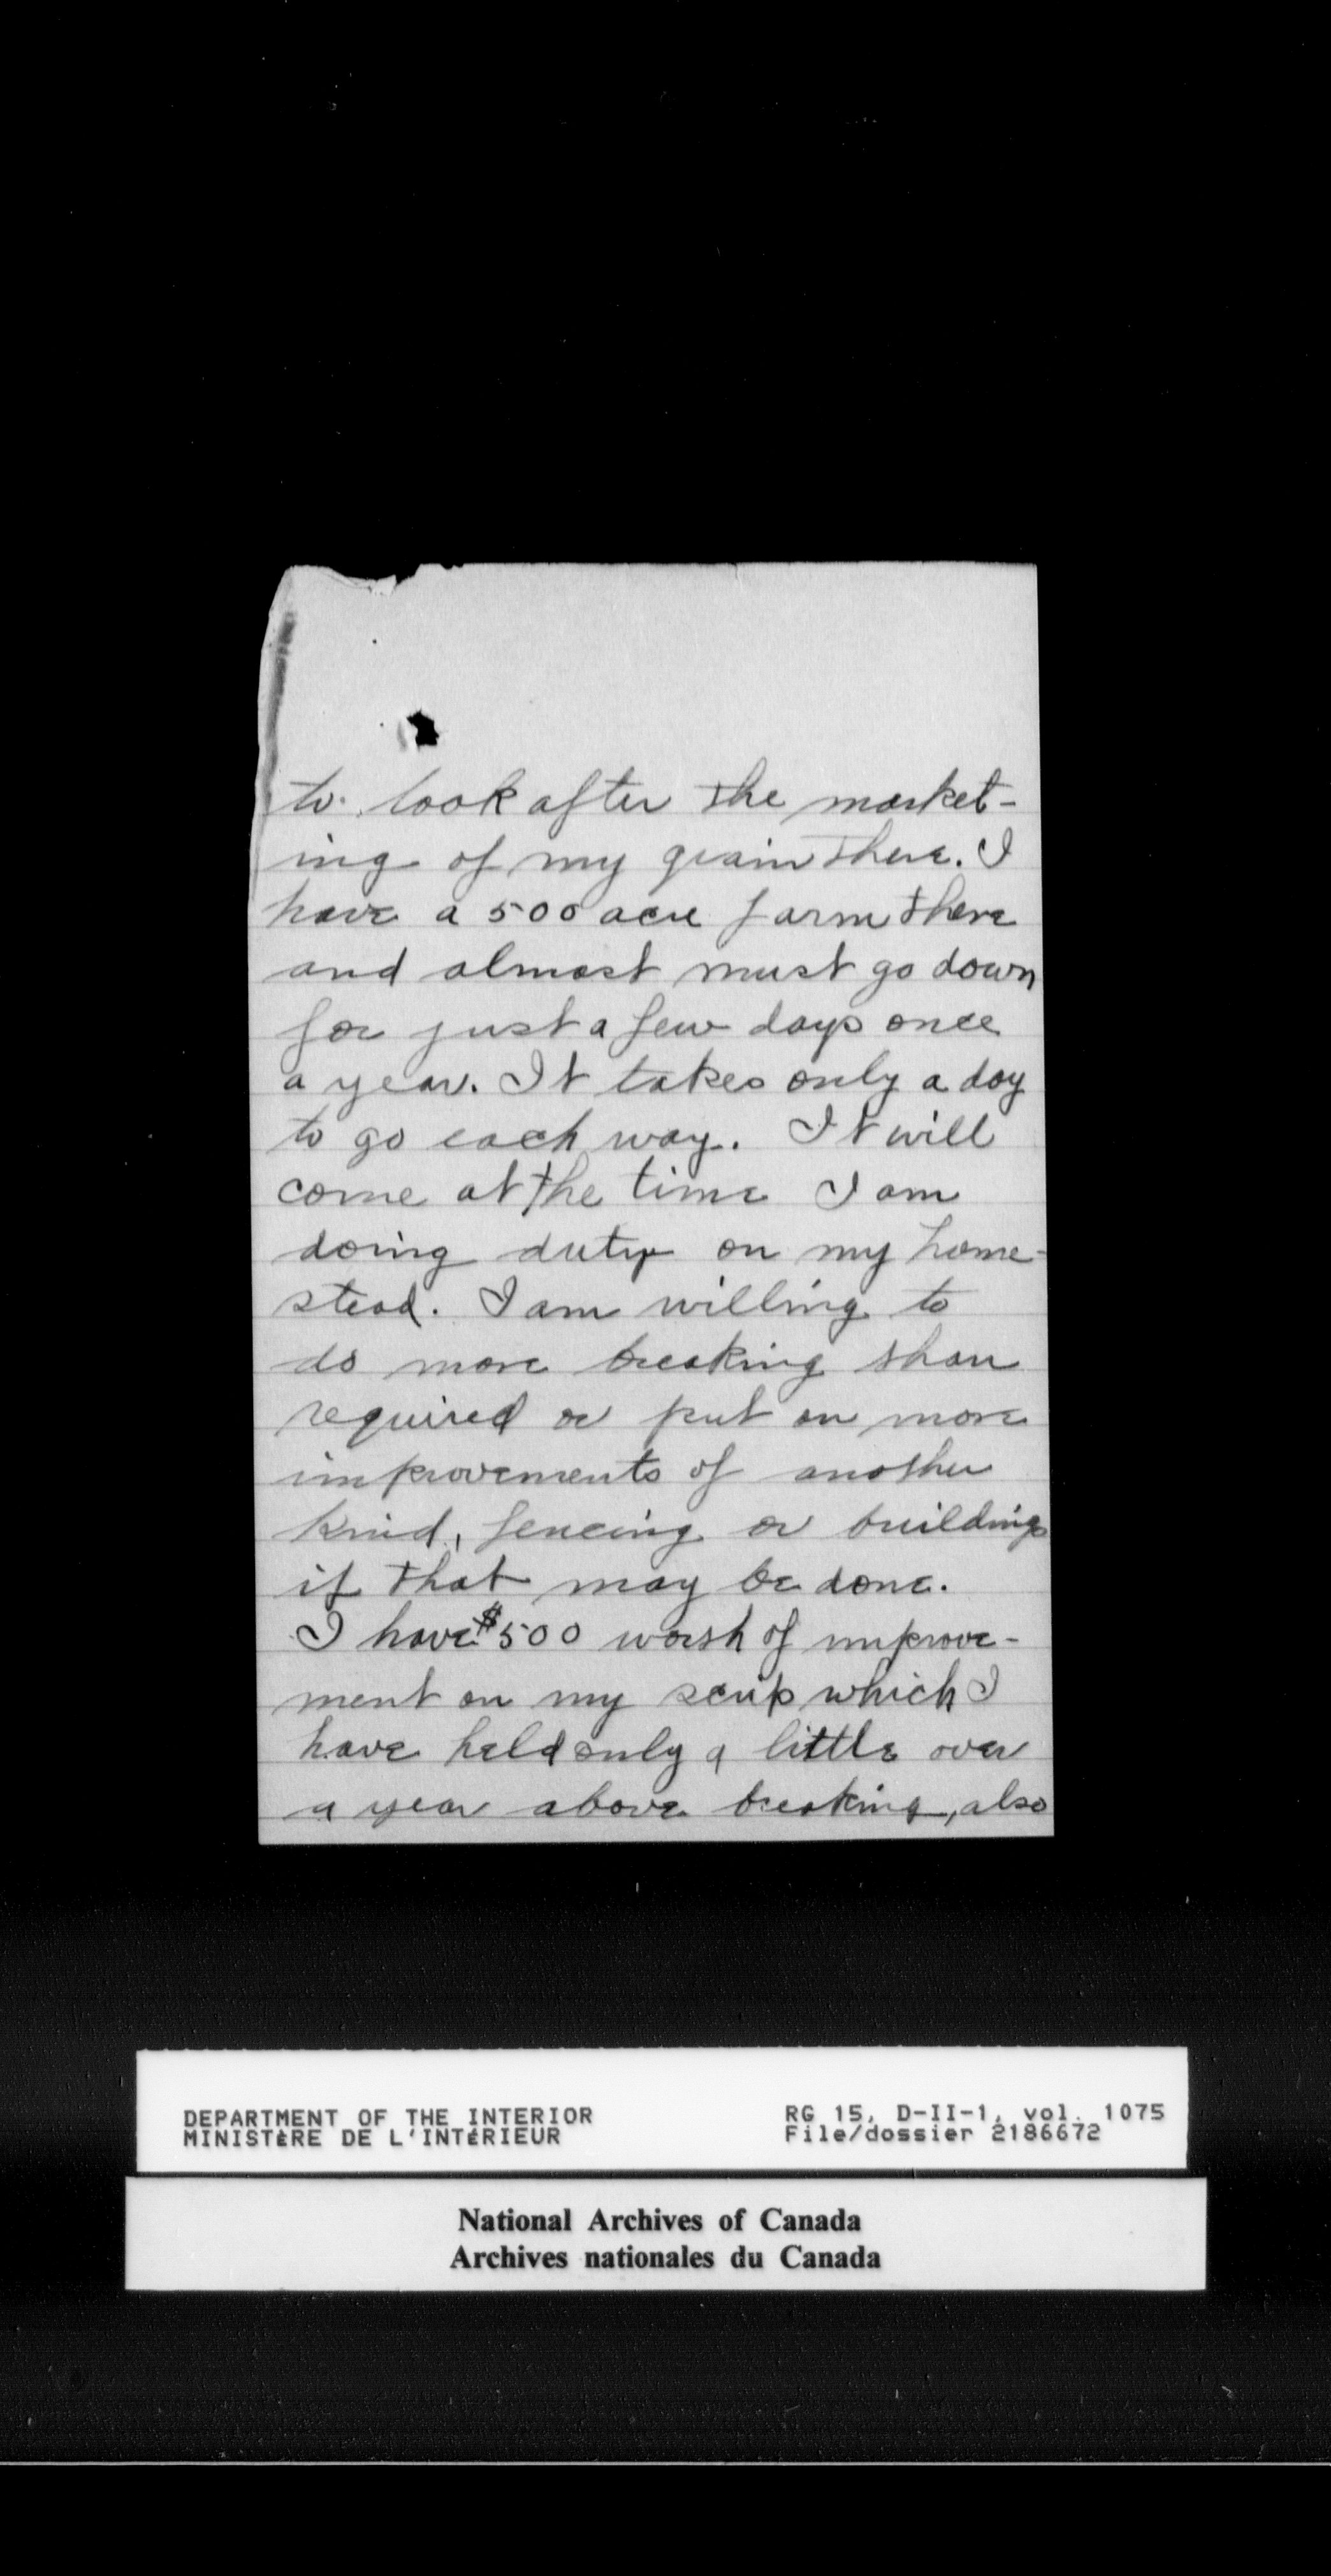 to look after the market-
ing of my grain there. I
have a 500 acre farm there
and almost must go down
for just a few days once
a year. It takes only a day
to go each way. It will
come at the time I am
doing duty on my home-
stead. I am willing to
do more breaking than
required or put on more
improvements of another
kind, fencing or buildings
if that may be done.
I have $500 worth of improve-
ment on my scrip which I
have held only a little over
a year above breaking, also
DEPARTMENT OF THE INTERIOR RG 15, D-II-1, vol. 1075
MINISTÈRE DE L'INTÉRIEUR File/dossier 2186672
National Archives of Canada
Archives nationales du Canada